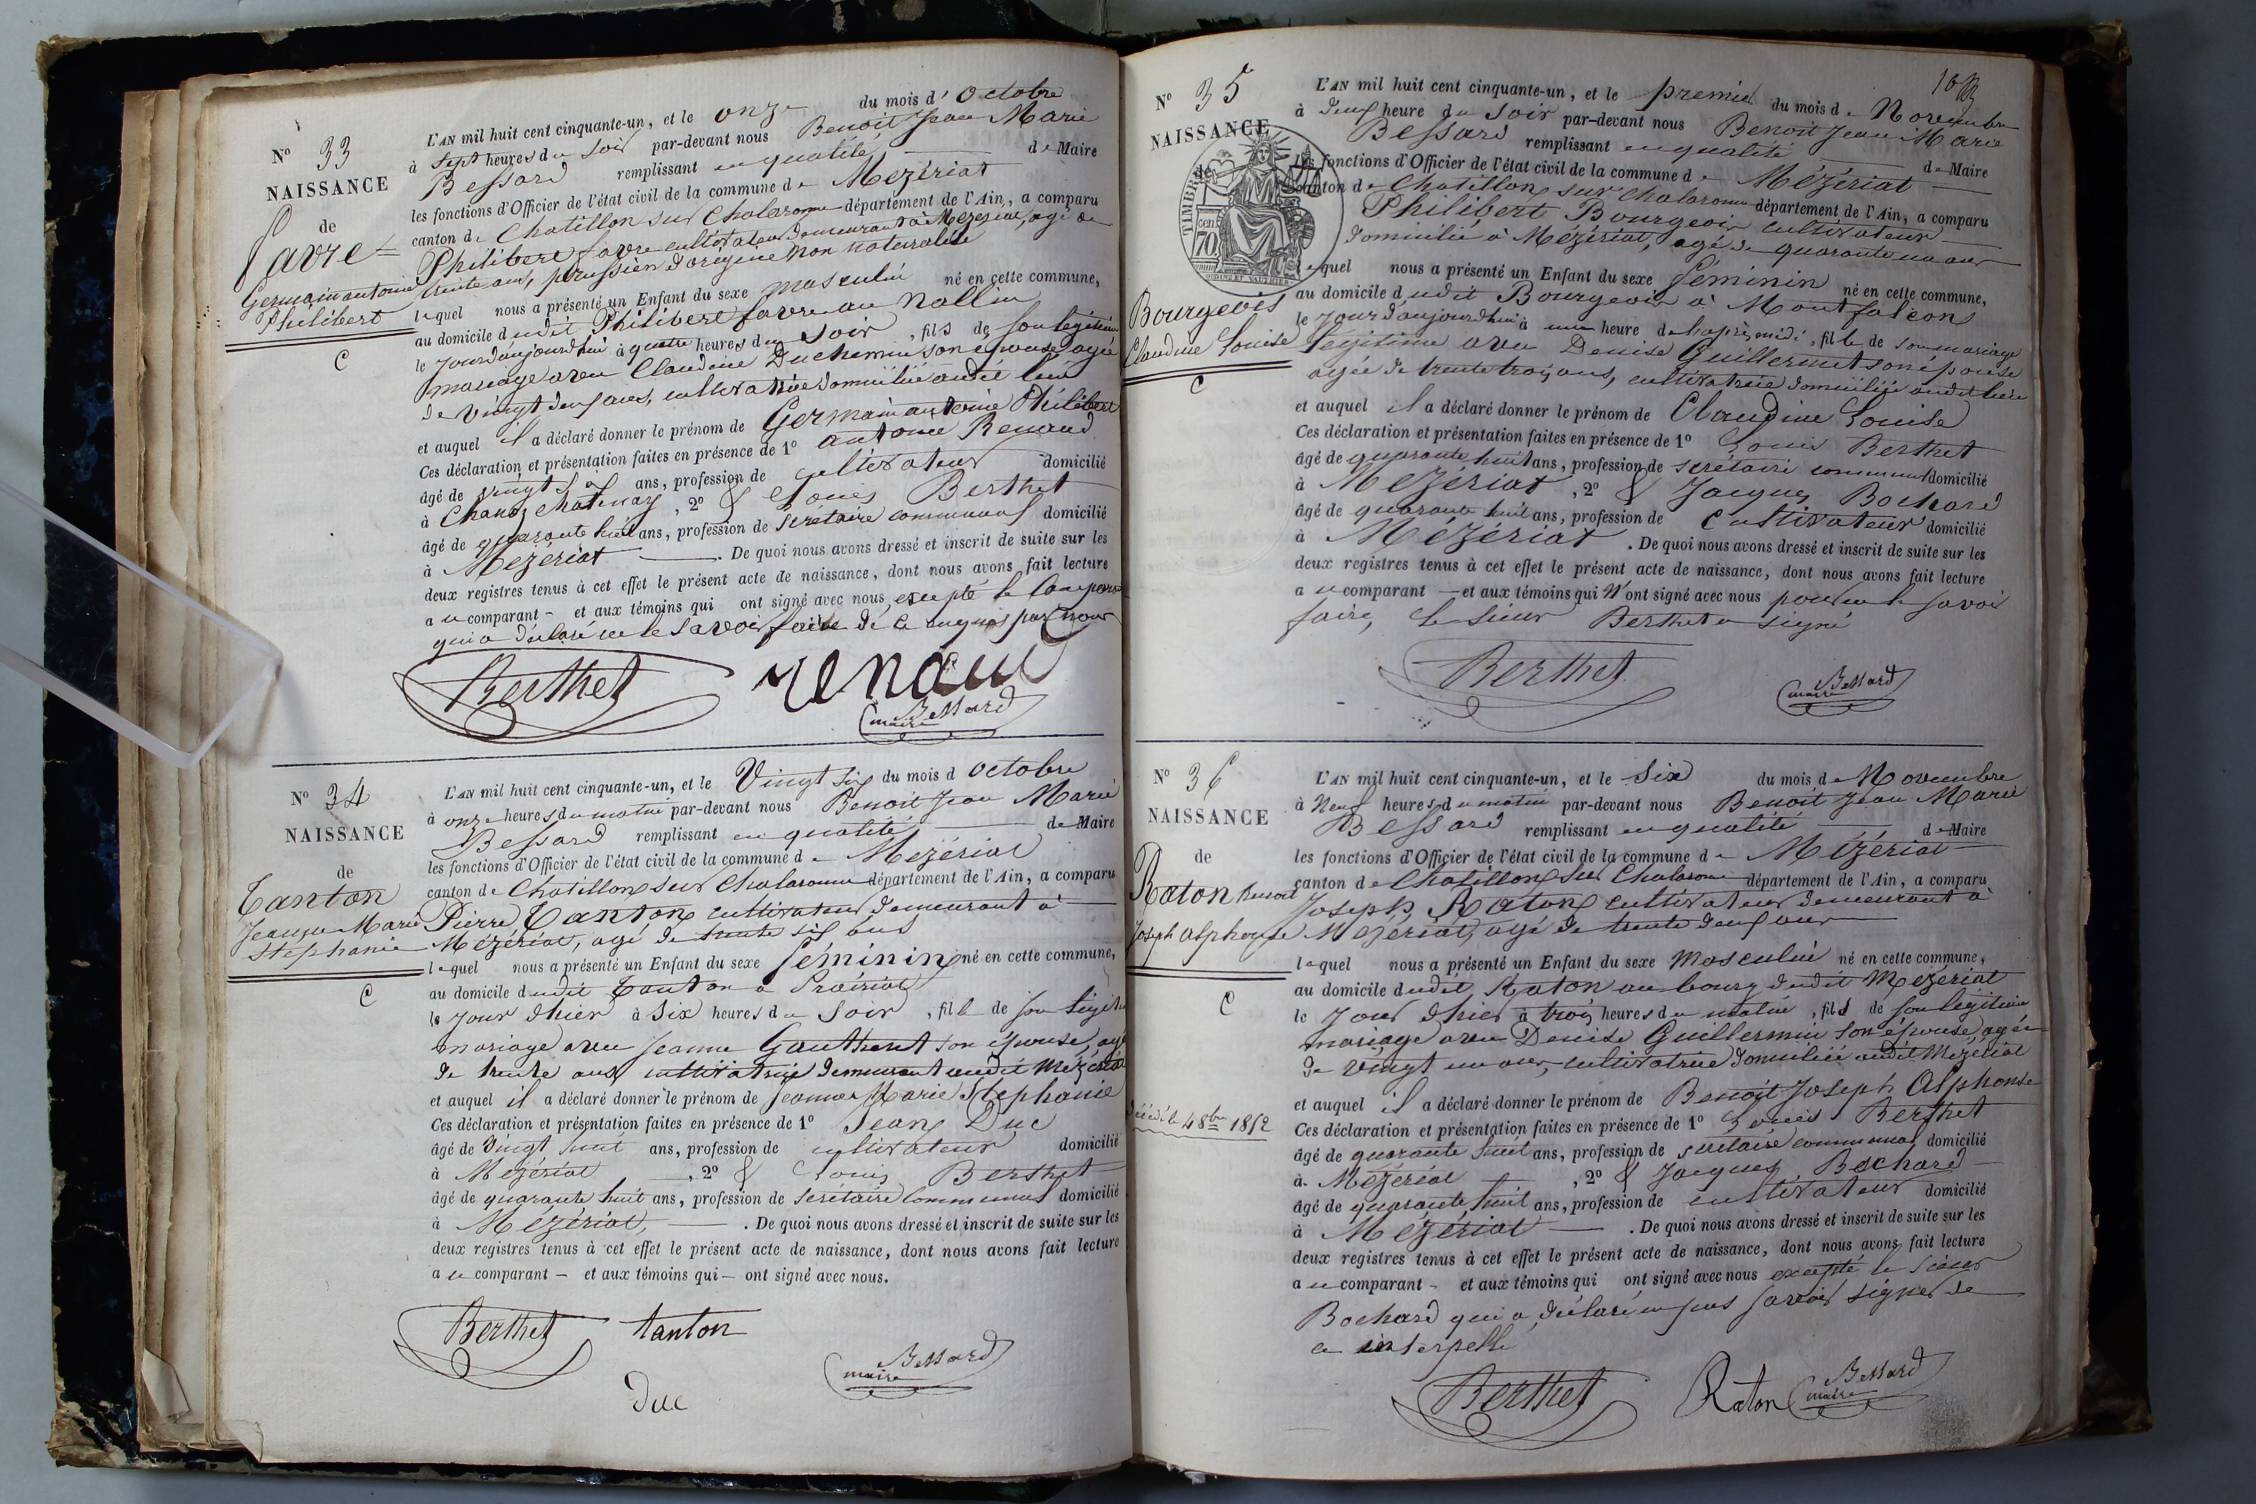 N° 33
NAISSANCE
de
favre
Germain antoine
Philibert
C
L'AN mil huit cent cinquante-un, et le onze du mois d' Octobre
à sept heures du soir par-devant nous Benoit Jean Marie
Bessard remplissant en qualité de Maire
les fonctions d'Officier de l'état civil de la commune de Mézériat
canton de Chatillon sur Chalaronne département de l'Ain, a comparu
Philibert favre cultivateur demeurant à Mézériat, agé de
trente ans, prussien d'origine non naturalisé
lequel nous a présenté un Enfant du sexe masculin né en cette commune,
au domicile dudit Philibert favre au
le jourd'aujourd'hui à quatre heures du soir, fils de son légitime
mariage avec Claudine Duchemin son épouse, agée
de vingt deux ans, cultivatrice domiciliée audit lieu
et auquel il a déclaré donner le prénom de Germain antoine Philibert
Ces déclaration et présentation faites en présence de 1° antoine Renaud
âgé de vingt ans, profession de cultivateur domicilié
à Chanoz chatenay, 2° & Louis Berthet
âgé de quarante huit ans, profession de secrétaire communal domicilié
à Mézériat . De quoi nous avons dressé et inscrit de suite sur les
deux registres tenus à cet effet le présent acte de naissance, dont nous avons fait lecture
au comparant - et aux témoins qui ont signé avec nous excepté le
qui a déclaré ne le savoir faire de ce enquis par nous
Berthet renaud
Bessard
maire
N° 34
NAISSANCE
de
Tanton
Jeanne Marie
Stéphanie
C
L'AN mil huit cent cinquante-un, et le Vingt six du mois d Octobre
à onze heures du matin par-devant nous Benoit Jean Marie
Bessard remplissant en qualité de Maire
les fonctions d'Officier de l'état civil de la commune de Mézériat
canton de Chatillon sur Chalaronne département de l'Ain, a comparu
Pierre Tanton cultivateur demeurant à
Mézériat, agé de trente six ans
lequel nous a présenté un Enfant du sexe féminin né en cette commune,
au domicile dudit Tanton à
le jour d'hier à six heures du soir, fille de son légitime
mariage avec Jeanne Gautheret son épouse, agée
de trente ans cultivatrice demeurant audit Mézériat
et auquel il a déclaré donner le prénom de Jeanne Marie Stephanie
Ces déclaration et présentation faites en présence de 1° Jean Duc
âgé de vingt huit ans, profession de cultivateur domicilié
à Mézériat, 2° & Louis Berthet
âgé de quarante huit ans, profession de secrétaire communal domicilié
à Mézériat, . De quoi nous avons dressé et inscrit de suite sur les
deux registres tenus à cet effet le présent acte de naissance, dont nous avons fait lecture
au comparant - et aux témoins qui - ont signé avec nous.
Berthet tanton
Bessard
maire
duc
103
N° 35
NAISSANCE
de
TIMBRE
70 cent
Bourgeois
Claudine Louise
C
L'AN mil huit cent cinquante-un, et le premier du mois de Novembre
à deux heure du soir par-devant nous Benoit Jean Marie
Bessard remplissant en qualité de Maire
les fonctions d'Officier de l'état civil de la commune de Mézériat
canton de Chatillon sur Chalaronne département de l'Ain, a comparu
Philibert Bourgeois cultivateur
domicilié à Mézériat, agé de quarante un ans
lequel nous a présenté un Enfant du sexe féminin né en cette commune,
au domicile dudit Bourgeois à Montfalcon
le jourd'aujourd'hui à une heure de l'après midi, fille de son mariage
légitime avec Denise Guillermet son épouse
agée de trente trois ans, cultivatrice domiciliée audit lieu
et auquel il a déclaré donner le prénom de Claudine Louise
Ces déclaration et présentation faites en présence de 1° Louis Berthet
âgé de quarante huit ans, profession de secrétaire communal domicilié
à Mézériat, 2° & Jacques Bochard
âgé de quarante huit ans, profession de Cultivateur domicilié
à Mézériat . De quoi nous avons dressé et inscrit de suite sur les
deux registres tenus à cet effet le présent acte de naissance, dont nous avons fait lecture
au comparant - et aux témoins qui n'ont signé avec nous pour ne le savoir
faire, le sieur Berthet a signé
Berthet
Bessard
maire
N° 36
NAISSANCE
de
Raton Benoit
Joseph alphonse
C
Décédé le 4 8bre 1852
L'AN mil huit cent cinquante-un, et le six du mois de Novembre
à Neuf heures du matin par-devant nous Benoit Jean Marie
Bessard remplissant en qualité de Maire
les fonctions d'Officier de l'état civil de la commune de Mézériat
canton de Chatillon sur Chalaronne département de l'Ain, a comparu
Joseph Raton cultivateur demeurant à
Mézériat, agé de trente deux ans
lequel nous a présenté un Enfant du sexe Masculin né en cette commune,
au domicile dudit Raton au bourg dudit Mézériat
le jour d'hier à trois heures du matin, fils de son légitime
mariage avec Denise Guillermin son épouse, agée
de vingt un ans, cultivatrice domiciliée audit Mézériat
et auquel il a déclaré donner le prénom de Benoit Joseph Alphonse
Ces déclaration et présentation faites en présence de 1° Louis Berthet
âgé de quarante huit ans, profession de secrétaire communal domicilié
à Mézériat, 2° & Jacques Bochard
âgé de quarante huit ans, profession de cultivateur domicilié
à Mézériat . De quoi nous avons dressé et inscrit de suite sur les
deux registres tenus à cet effet le présent acte de naissance, dont nous avons fait lecture
au comparant - et aux témoins qui ont signé avec nous excepté le sieur
Bochard qui a déclaré ne pas savoir signer de
ce interpellé
Berthet Raton
Bessard
maire